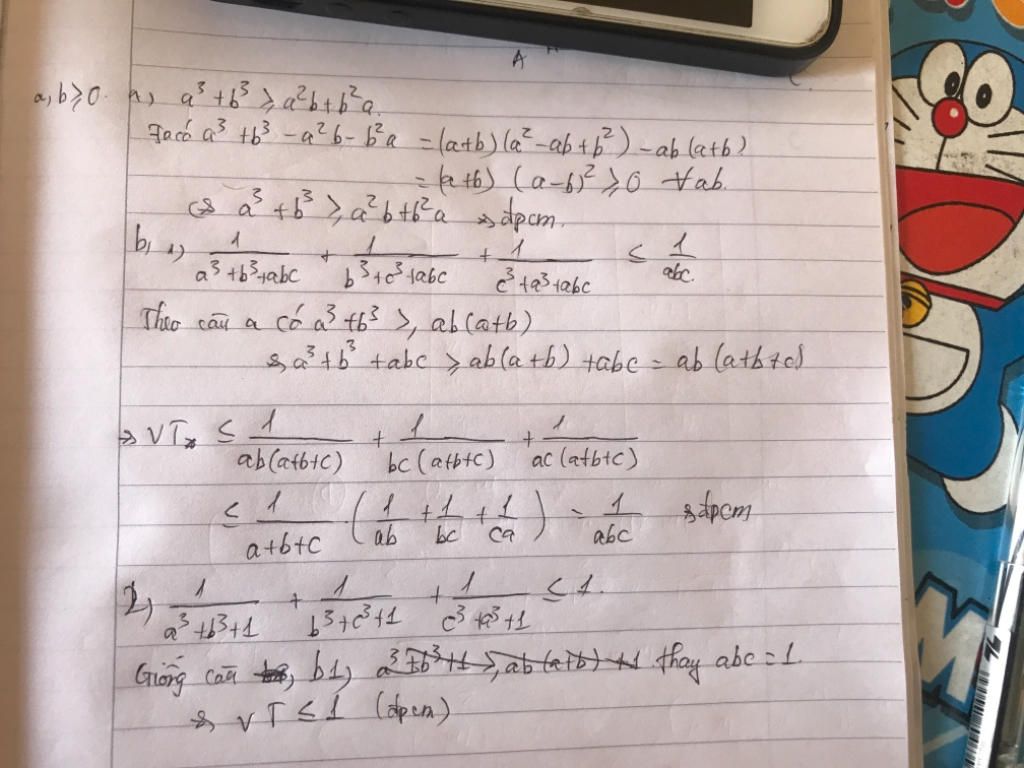 A
a, b ≥ 0. a, a³ + b³ ≥ a²b + b²a.
Ta có a³ + b³ - a²b - b²a = (a+b)(a² - ab + b²) - ab(a+b)
= (a+b) (a-b)² ≥ 0 ∀ab.
⇔ a³ + b³ ≥ a²b + b²a ⇒ đpcm.
b, 1) 1/(a³+b³+abc) + 1/(b³+c³+abc) + 1/(c³+a³+abc) ≤ 1/abc.
Theo câu a có a³ + b³ ≥ ab(a+b)
⇒ a³ + b³ + abc ≥ ab(a+b) + abc = ab(a+b+c)
⇒ VT ≤ 1/(ab(a+b+c)) + 1/(bc(a+b+c)) + 1/(ac(a+b+c))
≤ 1/(a+b+c) . (1/ab + 1/bc + 1/ca) = 1/abc ⇒ đpcm
2, 1/(a³+b³+1) + 1/(b³+c³+1) + 1/(c³+a³+1) ≤ 1.
Giống câu b1, a³+b³+1 ≥ ab(a+b)+1 thay abc = 1.
⇒ VT ≤ 1 (đpcm)